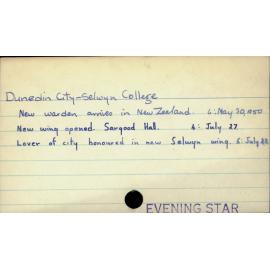 Dunedin City-Selwyn College
New warden arrives in New Zealand. 6: May 30, 1950
New wing opened. Sargood Hall. 4: July 27
Lover of city honoured in new Selwyn wing. 6: July 28
EVENING STAR